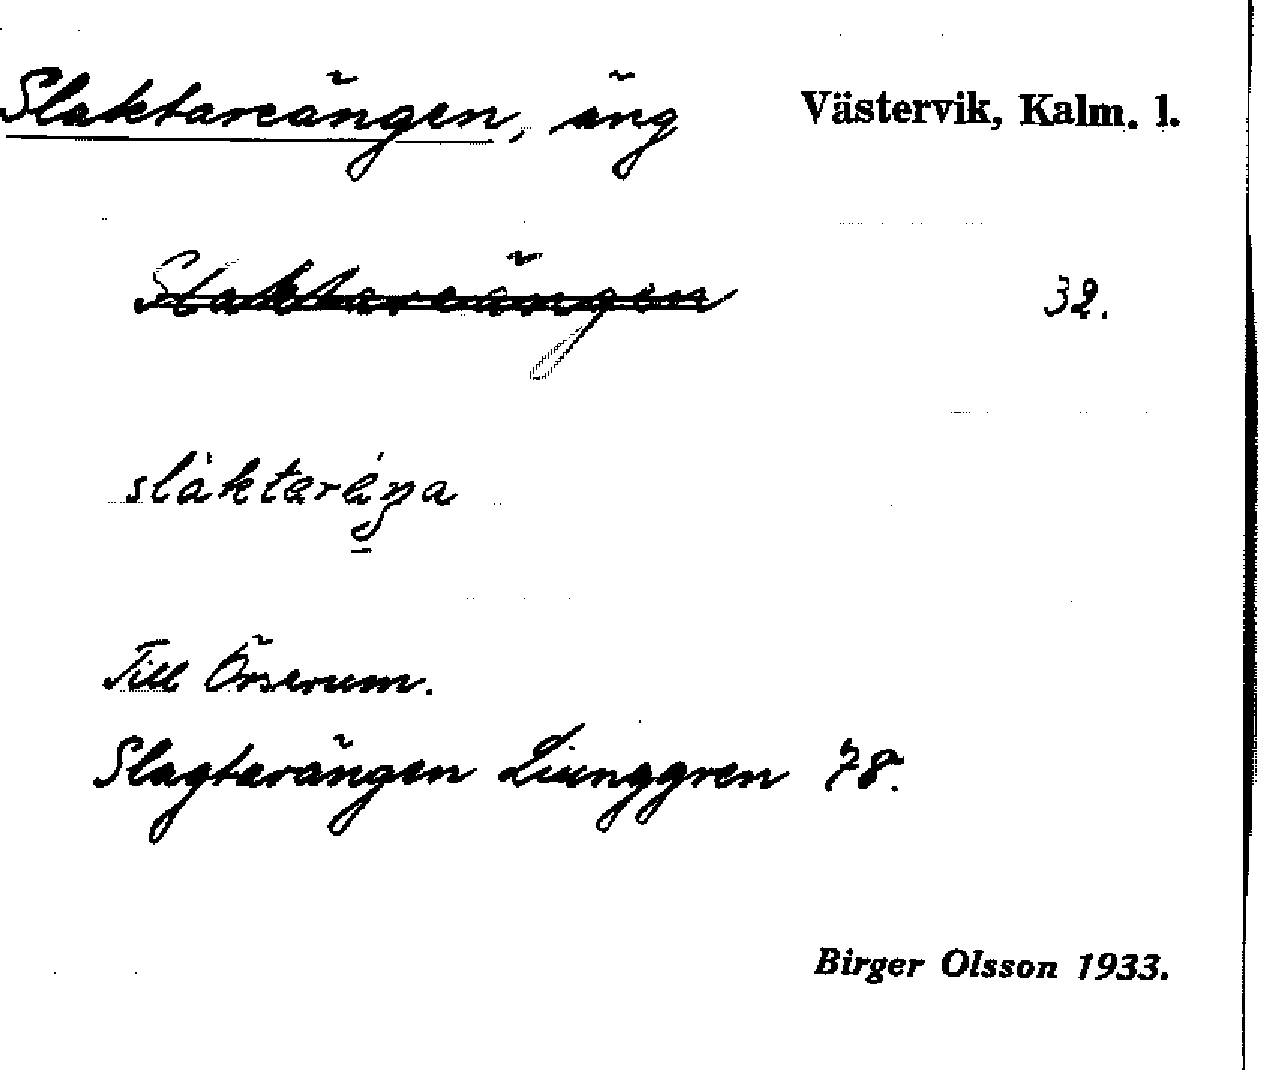 Slaktareängen, äng Västervik, Kalm. l.
Slaktareängen 32.
Till Örserum.
Slagterängen Liunggren 78.
Birger Olsson 1933.